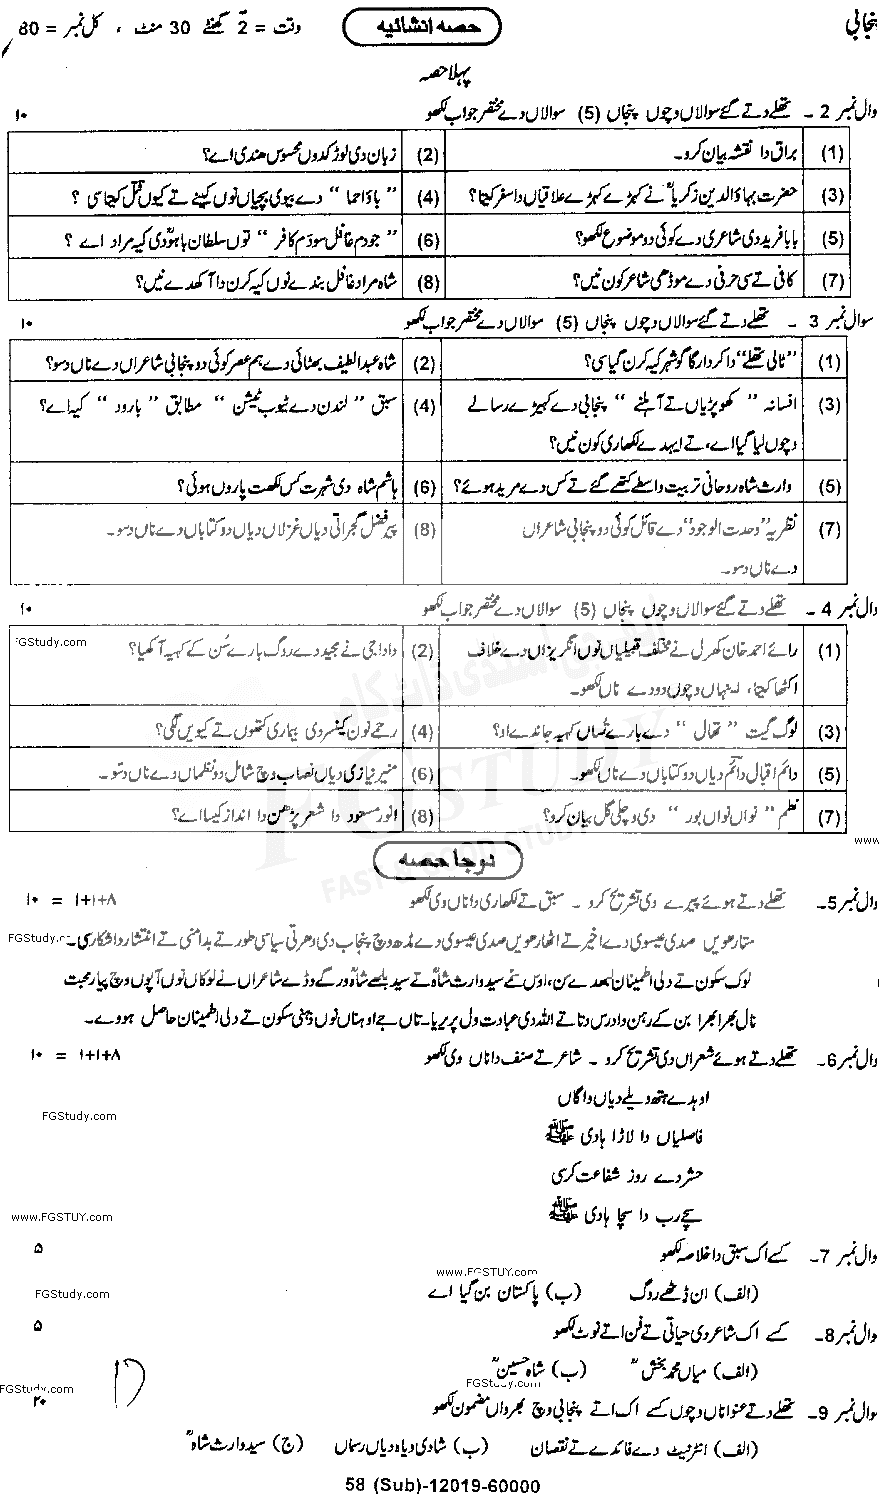 پنجابی حصہ انشائیہ وقت = 2 گھنٹے 30 منٹ ، کل نمبر = 80
پہلا حصہ
وال نمبر 2 ۔ تھلے دتے گئے سوالاں وچوں پنجاں (5) سوالاں دے مختصر جواب لکھو ۱۰
(1) براق دا نقشہ بیان کرو۔ (2) زبان دی لوڑ کدوں محسوس ھندی اے؟
(3) حضرت بہاؤالدین زکریاؒ نے کہڑے کہڑے علاقیاں دا سفر کیتا؟ (4) "باؤ احما" دے بیوی بچیاں نوں کہنے تے کیوں قتل کیتا سی ؟
(5) بابا فرید دی شاعری دے کوئی دو موضوع لکھو؟ (6) "جو دم غافل سو دم کافر" توں سلطان باھوؒ دی کیہ مراد اے ؟
(7) کافی تے سی حرفی دے موڈھی شاعر کون نیں؟ (8) شاہ مراد غافل بندے نوں کیہ کرن دا آکھدے نیں؟
سوال نمبر 3 ۔ تھلے دتے گئے سوالاں وچوں پنجاں (5) سوالاں دے مختصر جواب لکھو ۱۰
(1) "ٹالی تھلے" دا کردار گاگو شہر کیہ کرن گیا سی؟ (2) شاہ عبداللطیف بھٹائی دے ہم عصر کوئی دو پنجابی شاعراں دے ناں دسو؟
(3) افسانہ "کھوپڑیاں تے آہلنے" پنجابی دے کیہڑے رسالے (4) سبق "لندن دے ٹیوب ٹیشن" مطابق "بارود" کیہ اے؟
وچوں لیا گیا اے، تے ایہدے لکھاری کون نیں؟
(5) وارث شاہ روحانی تربیت واسطے کتھے گئے تے کس دے مرید ہوئے؟ (6) ہاشم شاہ دی شہرت کس لکھت پاروں ہوئی؟
(7) نظریہ "وحدت الوجود" دے قائل کوئی دو پنجابی شاعراں (8) پیر فضل گجراتی دیاں غزلاں دیاں دو کتاباں دے ناں دسو۔
دے ناں دسو۔
وال نمبر 4 ۔ تھلے دتے گئے سوالاں وچوں پنجاں (5) سوالاں دے مختصر جواب لکھو ۱۰
FGStudy.com
(1) رائے احمد خان کھرل نے مختلف قبیلیاں نوں انگریزاں دے خلاف (2) دادا جی نے مجید دے روگ بارے سُن کے کیہ آکھیا؟
اکٹھا کیتا، اینہاں وچوں دو دے ناں لکھو۔
(3) لوک گیت "تھال" دے بارے تُساں کیہ جاندے او؟ (4) رحمے نون کینسر دی بیماری کتھوں تے کیویں لگی؟
(5) دائم اقبال دائم دیاں دو کتاباں دے ناں لکھو۔ (6) منیر نیازی دیاں نصاب وچ شامل دو نظماں دے ناں دسو۔
(7) نظم "نواں نواں بور" دی وچلی گل بیان کرو؟ (8) انور مسعود دا شعر پڑھن دا انداز کیسا اے؟
FGSTUDY
www
دوجا حصہ
وال نمبر 5۔ تھلے دتے ہوئے پیرے دی تشریح کرو ۔ سبق تے لکھاری دا ناں وی لکھو ۸+۱+۱ = ۱۰
ستارھویں صدی عیسوی دے اخیر تے اٹھارھویں صدی عیسوی دے مڈھ وچ پنجاب دی دھرتی سیاسی طور تے بدامنی تے انتشار دا شکار سی۔
FGStudy.c
لوک سکون تے دلی اطمینان لبھدے سن، اوس سمے سید وارث شاہؒ تے سید بلھے شاہؒ ورگے وڈے شاعراں نے لوکاں نوں آپوں وچ پیار محبت
نال بھرا بھرا بن کے رہن دا درس دتا تے اللہ دی عبادت ول پریریا۔ تاں جے اوہناں نوں ذہنی سکون تے دلی اطمینان حاصل ہووے۔
وال نمبر 6۔ تھلے دتے ہوئے شعراں دی تشریح کرو ۔ شاعر تے صنف دا ناں وی لکھو ۸+۱+۱ = ۱۰
اوہدے ہتھ ویلے دیاں واگاں
FGStudy.com
فاصلیاں دا لاڑا ہادی ﷺ
حشر دے روز شفاعت کرسی
سچے رب دا سچا ہادی ﷺ
www.FGSTUY.com
وال نمبر 7۔ کسے اک سبق دا خلاصہ لکھو ۵
www.FGSTUY.com
(الف) ان ڈٹھے روگ (ب) پاکستان بن گیا اے
FGStudy.com
وال نمبر 8۔ کسے اک شاعر دی حیاتی تے فن اتے نوٹ لکھو ۵
(الف) میاں محمد بخشؒ (ب) شاہ حسینؒ
FGStudy.com
FGStudy.com
سوال نمبر 9۔ تھلے دتے عنواناں وچوں کسے اک اتے پنجابی وچ بھرواں مضمون لکھو ۲۰
(الف) انٹرنیٹ دے فائدے تے نقصان (ب) شادی ویاہ دیاں رسماں (ج) سید وارث شاہؒ
58 (Sub)-12019-60000